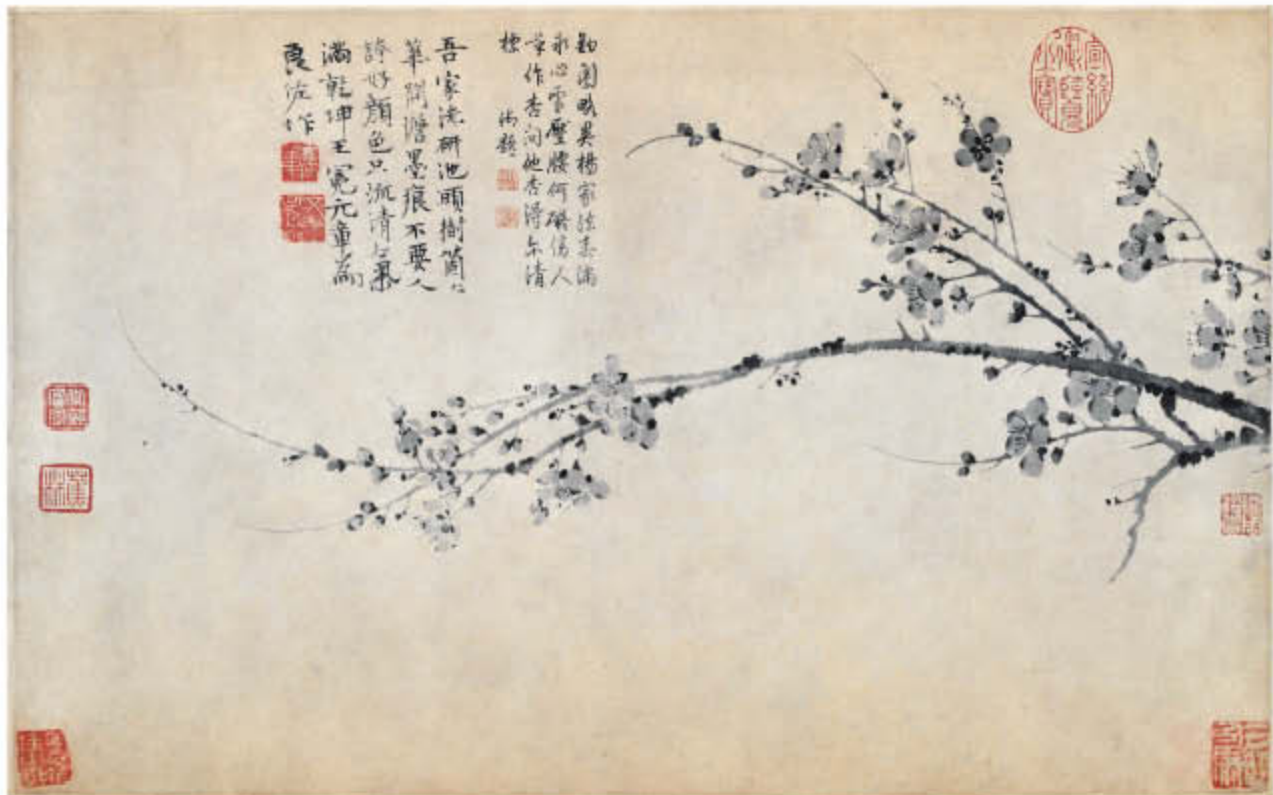 宣統御覽之寶
勾圈略異楊家法春滿
冰心雪壓腰何礙傖人
呼作杏問他杏得爾清
標
御題
吾家洗研池頭樹箇〻
華開澹墨痕不要人
誇好顏色只流清氣
滿乾坤王冕元章為
良佐作